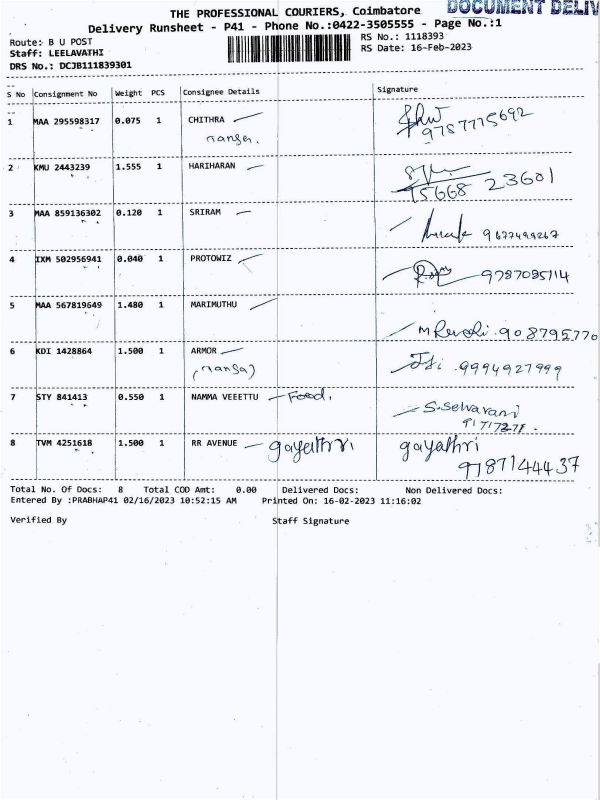 THE PROFESSIONAL COURIERS, Coimbatore
DOCUMENT DELIV
Delivery Runsheet - P41 - Phone No.:0422-3505555 - Page No.:1
Route: B U POST
RS No.: 1118393
Staff: LEELAVATHI
RS Date: 16-Feb-2023
DRS No.: DCJB111839301
S No Consignment No Weight PCS Consignee Details Signature
1 MAA 295598317 0.075 1 CHITHRA
9787775692
2 KMU 2443239 1.555 1 HARIHARAN
75668 23601
3 MAA 859136302 0.120 1 SRIRAM
9677499267
4 IXM 502956941 0.040 1 PROTOWIZ
9787085114
5 MAA 567819649 1.480 1 MARIMUTHU
M Revathi 908795770
6 KDI 1428864 1.500 1 ARMOR
9994927999
7 STY 841413 0.550 1 NAMMA VEEETTU Food.
S.Selvarani
8 TVM 4251618 1.500 1 RR AVENUE gayathri gayathri
9787144437
Total No. Of Docs: 8 Total COD Amt: 0.00 Delivered Docs: Non Delivered Docs:
Entered By :PRABHAP41 02/16/2023 10:52:15 AM Printed On: 16-02-2023 11:16:02
Verified By Staff Signature